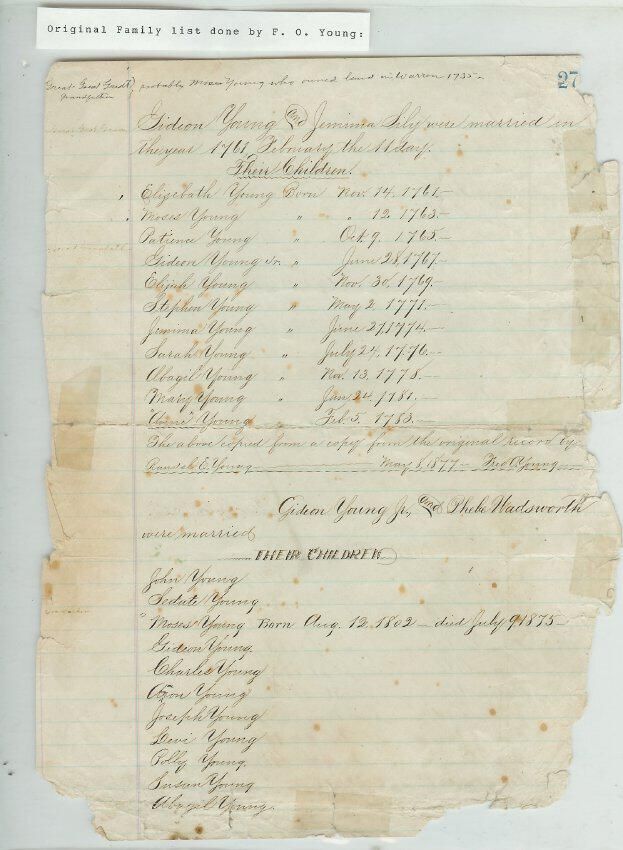 Original Family list done by F. O. Young:
27
Great Great Grandfather probably Moses Young who owned land in Warren 1735.
Gideon Young and Jemima Lily were married in
the year 1761, February the 11 day.
Their Children.
Elizebath Young Born Nov. 14. 1761.—
Moses Young " " 12. 1763.—
Patience Young " Oct. 9. 1765.—
Gideon Young Jr. " June 28, 1767.—
Elijah Young " Nov. 30. 1769.—
Stephen Young " May 2. 1771.—
Jemima Young " June 27, 1774.—
Sarah Young " July 24. 1776.—
Abagil Young " Nov. 13. 1778.—
Mary Young " Jan 24. 1781.—
Young " Feb. 5. 1783.—
The above copied from a copy form the original record by
Randal E. Young May 8, 1877— Fred O. Young
Gideon Young Jr., and Phebe Wadsworth
were married
THEIR CHILDREN
John Young
Young
"Moses Young Born Aug. 12. 1802 — died July 9 1875—
Gideon Young
Charles Young
Young
Joseph Young
Levi Young
Polly Young
Susan Young
Abygil Young.